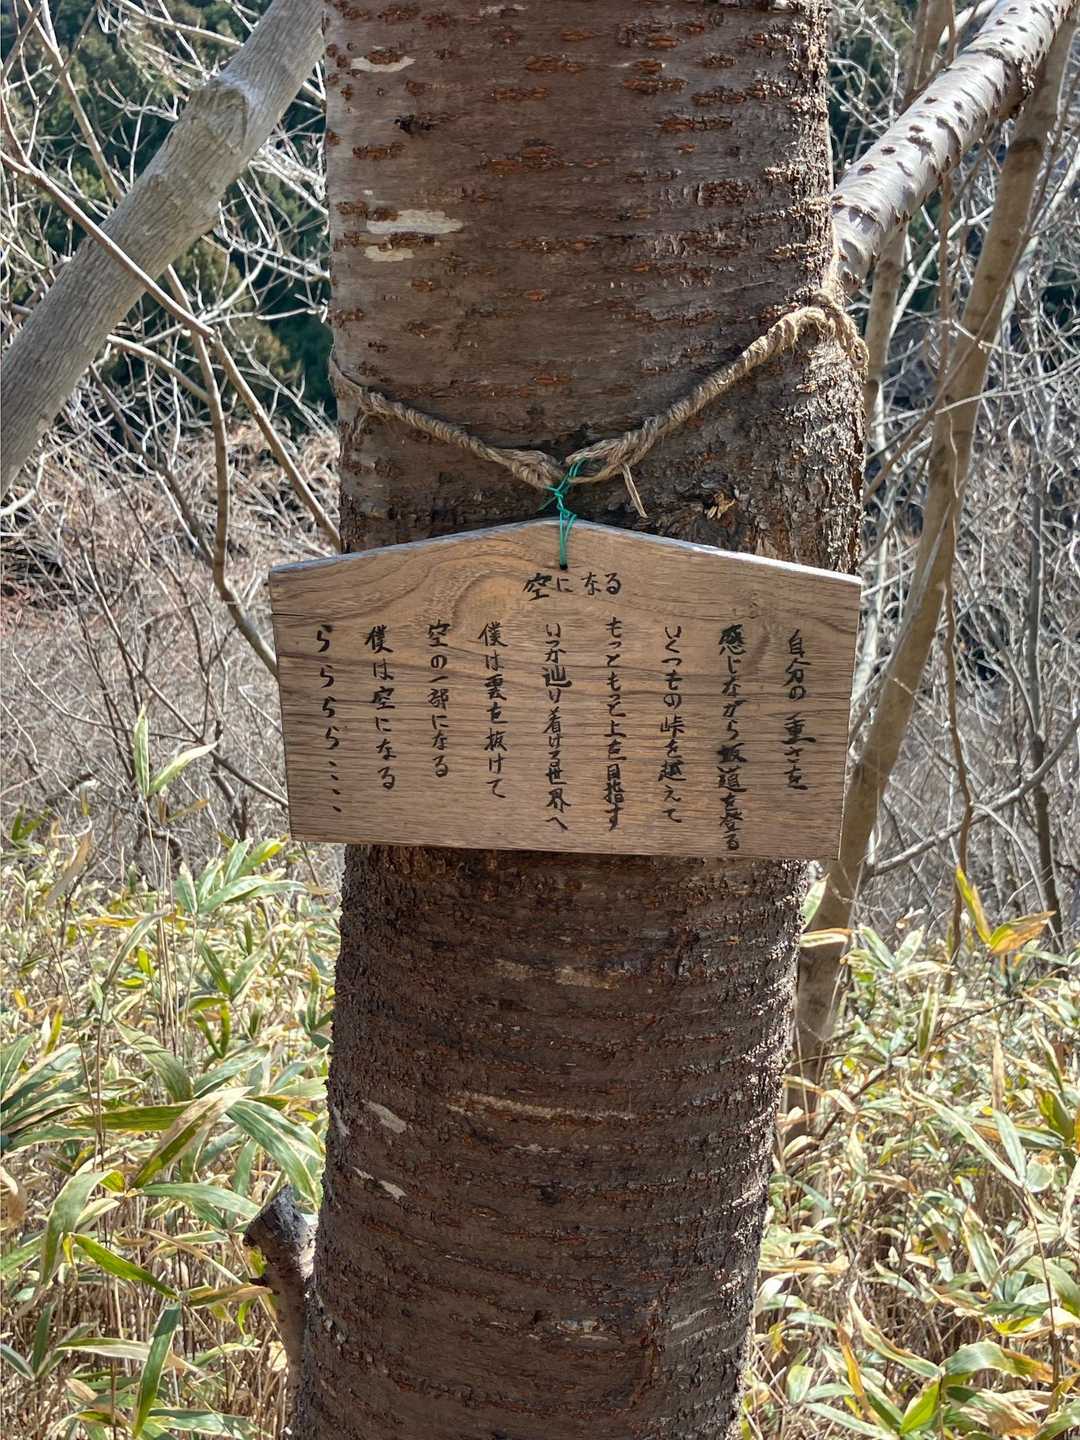 空になる
自分の重さを
感じながら坂道を登る
いくつもの峠を越えて
もっともっと上を目指す
いつか辿り着ける世界へ
僕は雲を抜けて
空の一部になる
僕は空になる
ららららら、、、